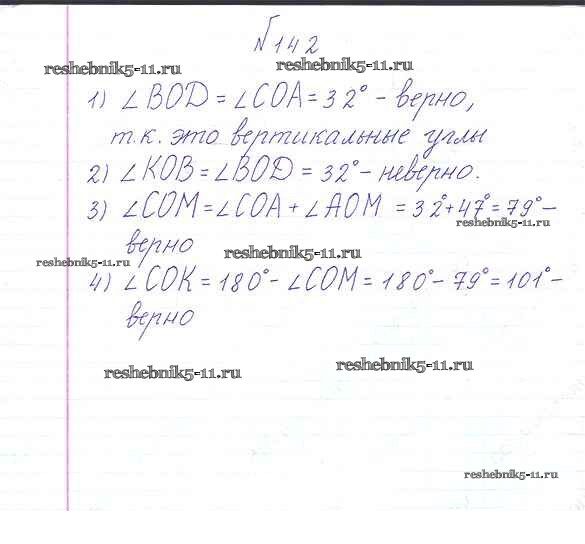 №142
reshebnik5-11.ru reshebnik5-11.ru
1) ∠BOD = ∠COA = 32° - верно,
т.к. это вертикальные углы
2) ∠KOB = ∠BOD = 32° - неверно.
3) ∠COM = ∠COA + ∠AOM = 32°+47°=79° -
reshebnik5-11.ru
верно
reshebnik5-11.ru
reshebnik5-11.ru
4) ∠COK = 180° - ∠COM = 180° - 79° = 101° -
верно
reshebnik5-11.ru
reshebnik5-11.ru
reshebnik5-11.ru